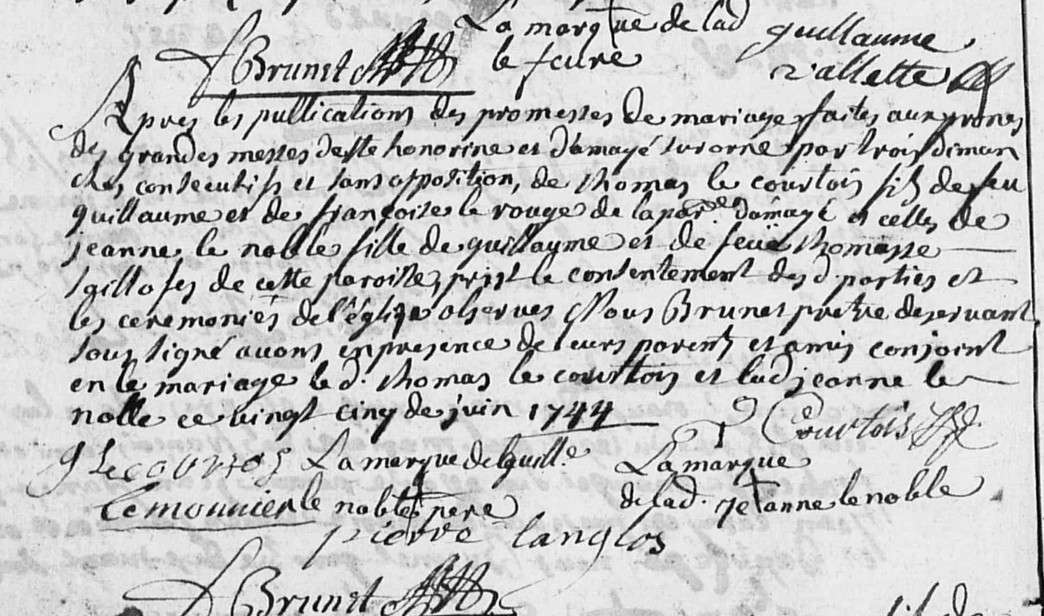 La marque de lad guillaume
f Brunet le feure vallette
Apres les publications des promesses de mariage faites aux prones
des grandes messes de ste honorine et d'amayé sur orne par trois diman
ches consecutifs et sans opposition, de thomas le courtois fils de feu
guillaume et de françoise le rouge de la par. d'amayé et celles de
jeanne le noble fille de guillaume et de feüe thomasse
de cette paroisse, prist le consentement des d. parties et
les ceremonies de l'église observés Nous Brunet pretre deservant
sous signé avons en presence de leurs parents et amis conjoint
en le mariage le d. thomas le courtois et lad jeanne le
nolle ce vingt cinq de juin 1744
Courtois
g Lecourtois La marque de guille La marque
Lemonnier le noble pere de lad. jeanne le noble
pierre langlos
f Brunet